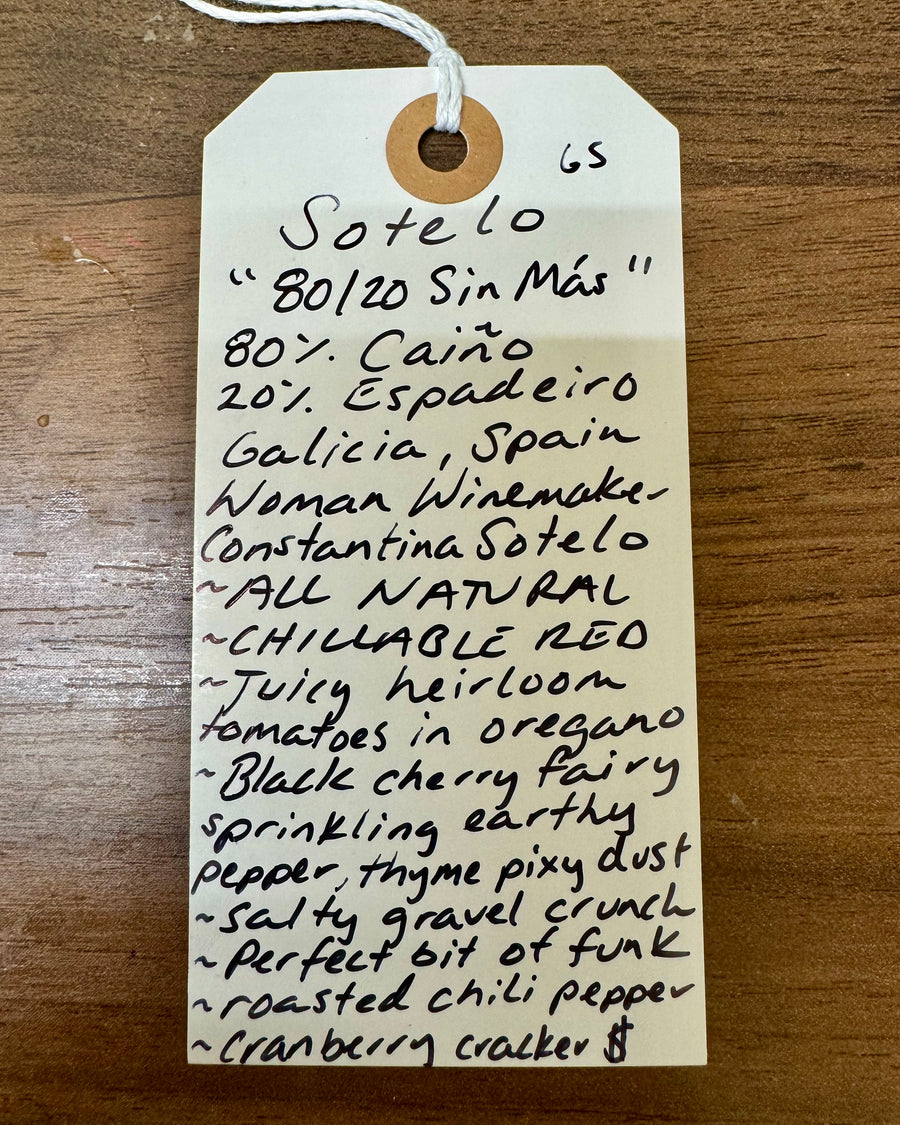 65
Sotelo
"80/20 Sin Más"
80% Caiño
20% Espadeiro
Galicia, Spain
Woman Winemaker
Constantina Sotelo
~ALL NATURAL
~CHILLABLE RED
~Juicy heirloom
tomatoes in oregano
~Black cherry fairy
sprinkling earthy
pepper, thyme pixy dust
~Salty gravel crunch
~Perfect bit of funk
~roasted chili pepper
~Cranberry cracker $